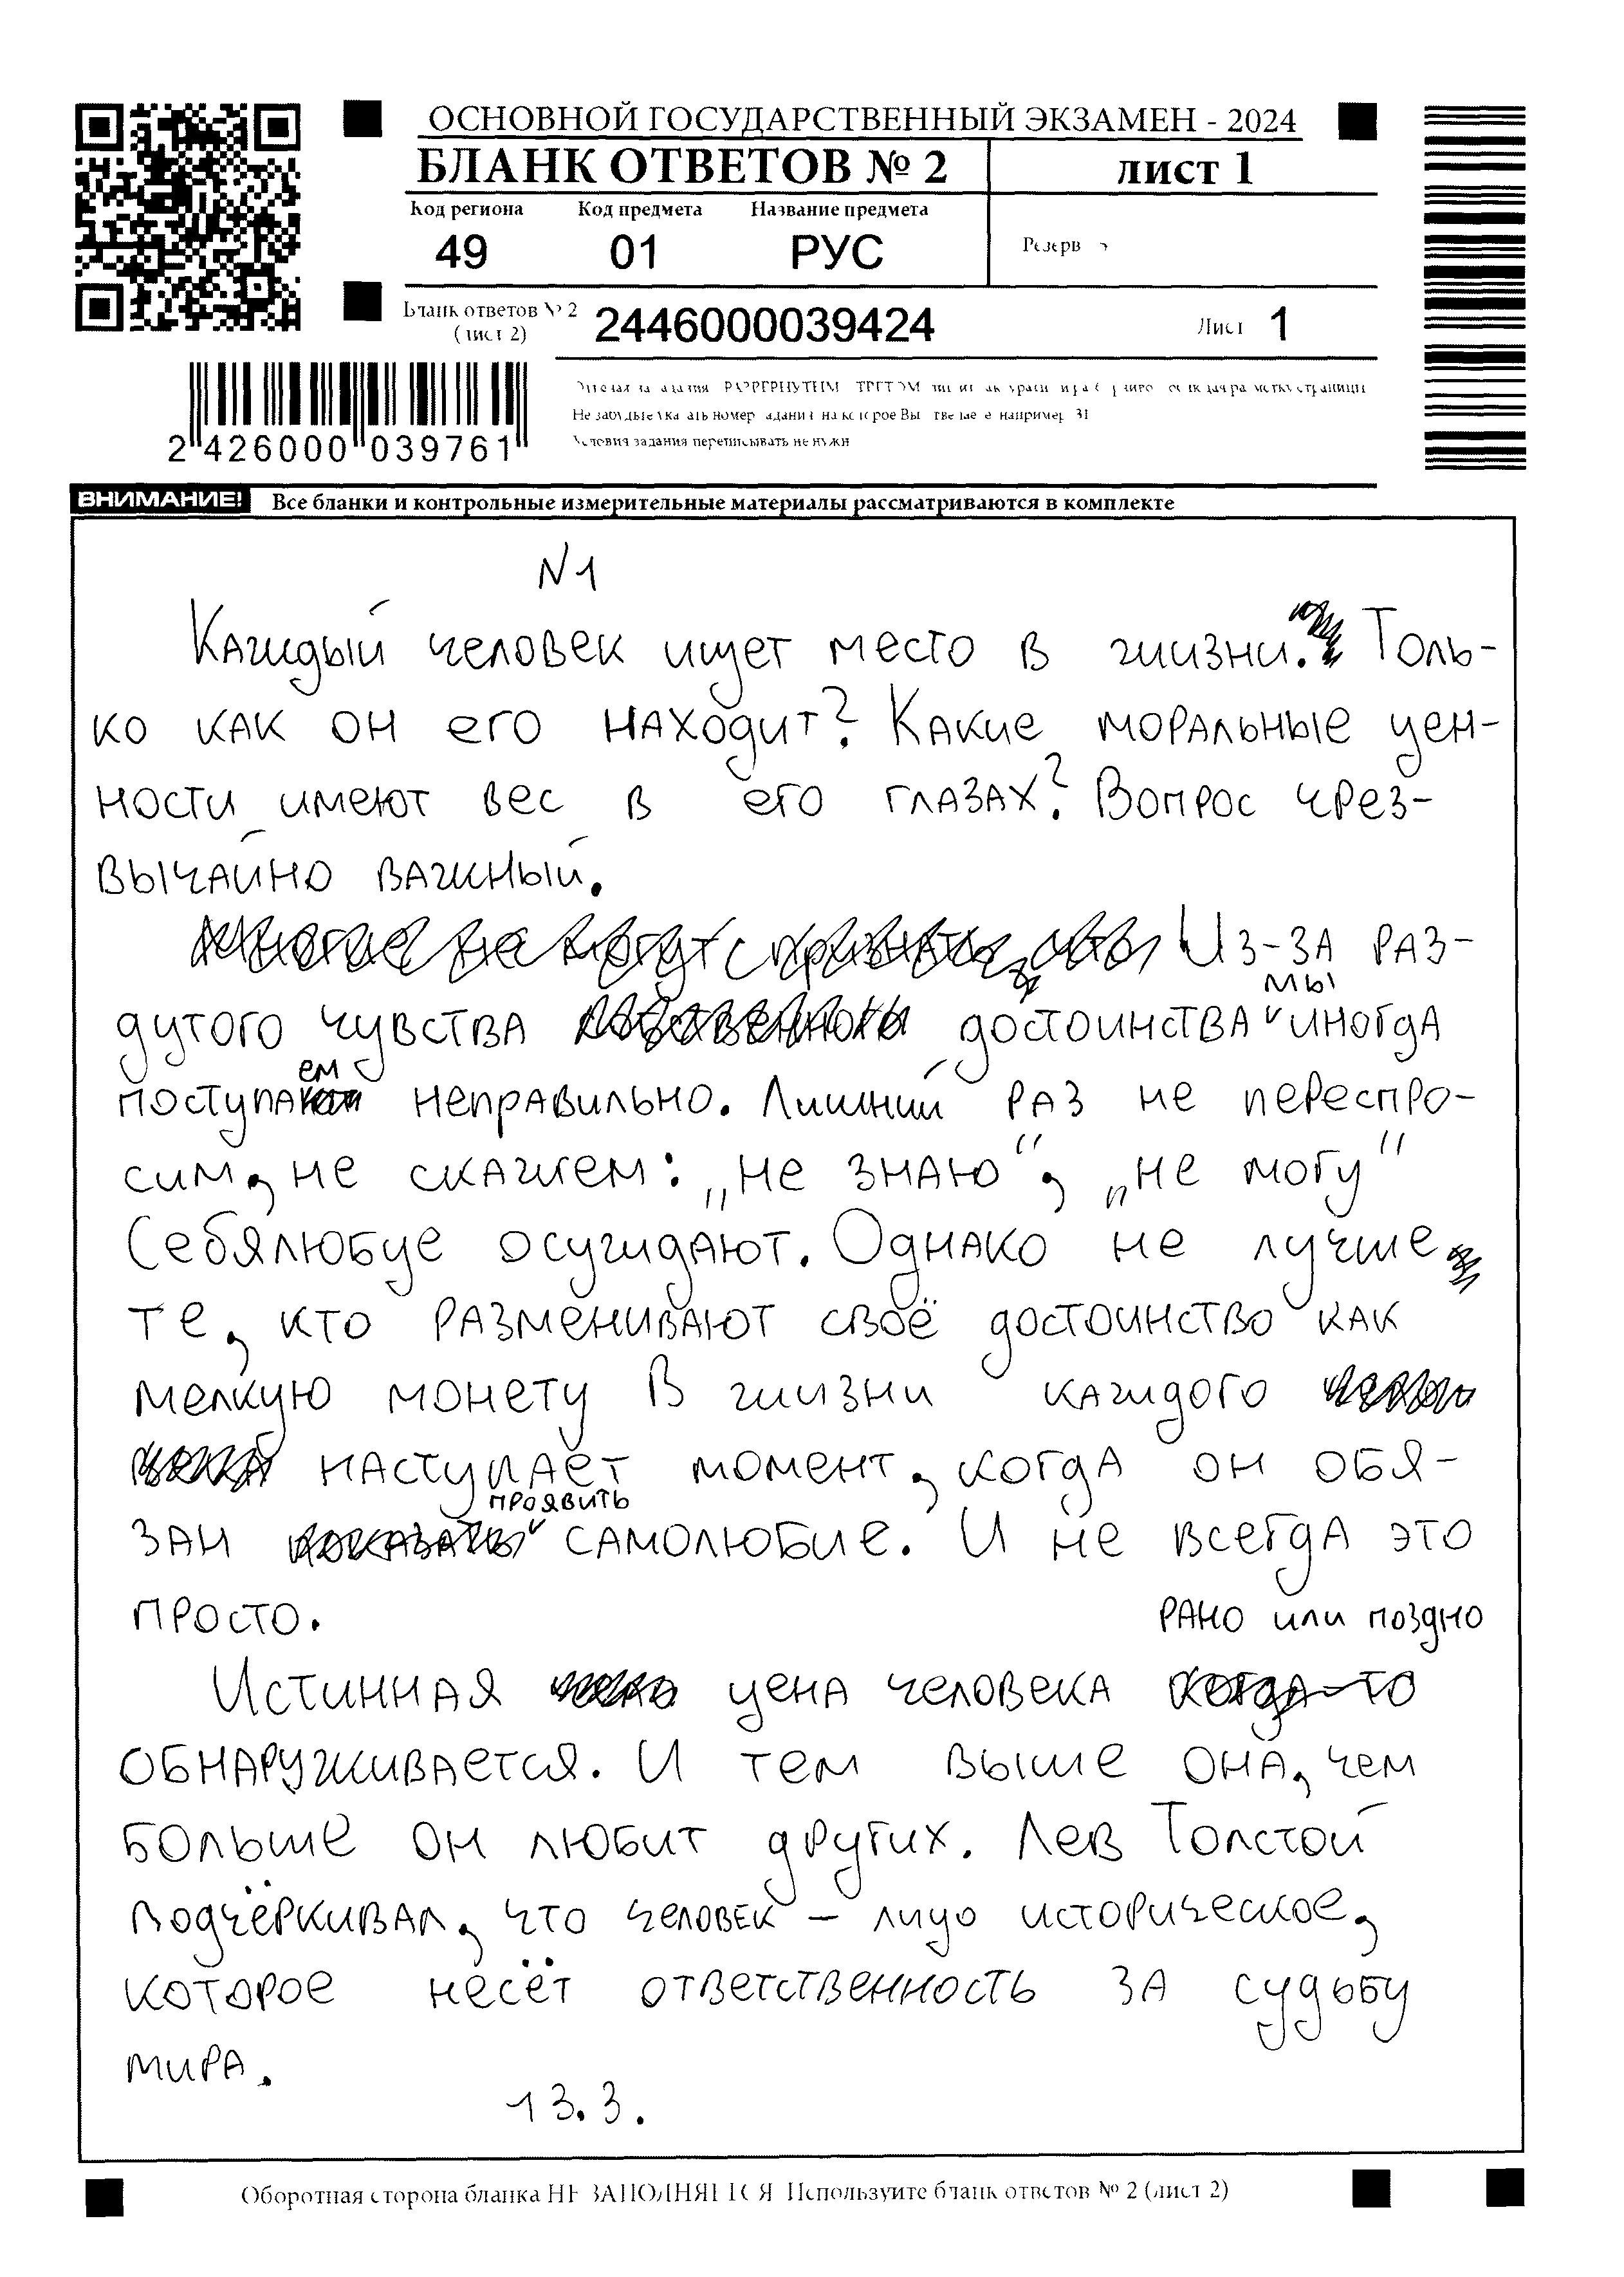 ОСНОВНОЙ ГОСУДАРСТВЕННЫЙ ЭКЗАМЕН - 2024
БЛАНК ОТВЕТОВ № 2
лист 1
Код региона Код предмета Название предмета
49 01 РУС
Резерв
Бланк ответов № 2
(лист 2)
2446000039424
Лист 1
2 426000 039761
Условия задания переписывать не нужн
ВНИМАНИЕ! Все бланки и контрольные измерительные материалы рассматриваются в комплекте
N1
Каждый человек ищет место в жизни. Толь-
ко как он его находит? Какие моральные цен-
ности имеют вес в его глазах? Вопрос чрез-
вычайно важный.
Из-за раз-
дутого чувства достоинства мы иногда
поступаем неправильно. Лишний раз не переспро-
сим, не скажем: „не знаю“, „не могу"
Себялюбце осуждают. Однако не лучше
те, кто разменивают своё достоинство как
мелкую монету В жизни каждого
наступает момент, когда он обя-
зан проявить самолюбие. И не всегда это
просто.
рано или поздно
Истинная цена человека когда-то
обнаруживается. И тем выше она, чем
больше он любит других. Лев Толстой
подчёркивал, что человек – лицо историческое,
которое несёт ответственность за судьбу
мира.
13.3.
Оборотная сторона бланка НЕ ЗАПОЛНЯЕТСЯ Используйте бланк ответов № 2 (лист 2)